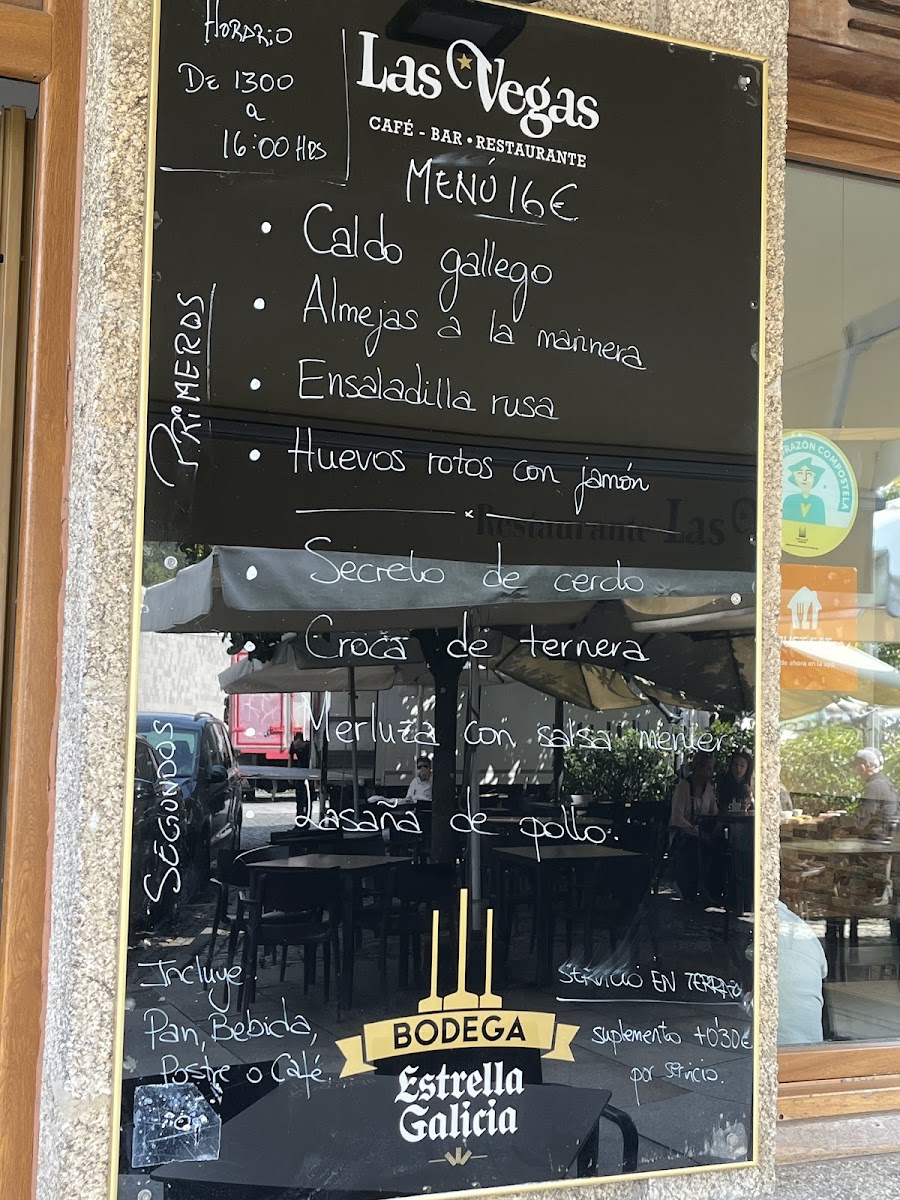 Horario
De 1300
a
16:00 Hrs
Las Vegas
CAFÉ - BAR • RESTAURANTE
MENÚ 16€
PRIMEROS
• Caldo gallego
• Almejas a la marinera
• Ensaladilla rusa
• Huevos rotos con jamón
Restaurante Las
SEGUNDOS
• Secreto de cerdo
• Croca de ternera
• Merluza con salsa menier
• Lasaña de pollo.
Incluye
Pan, Bebida,
Postre o Café.
BODEGA
Estrella
Galicia
SERVICIO EN TERRAZA
suplemento +0'30€
por servicio.
RAZÓN COMPOSTELA
JUST EAT
de ahora en la app